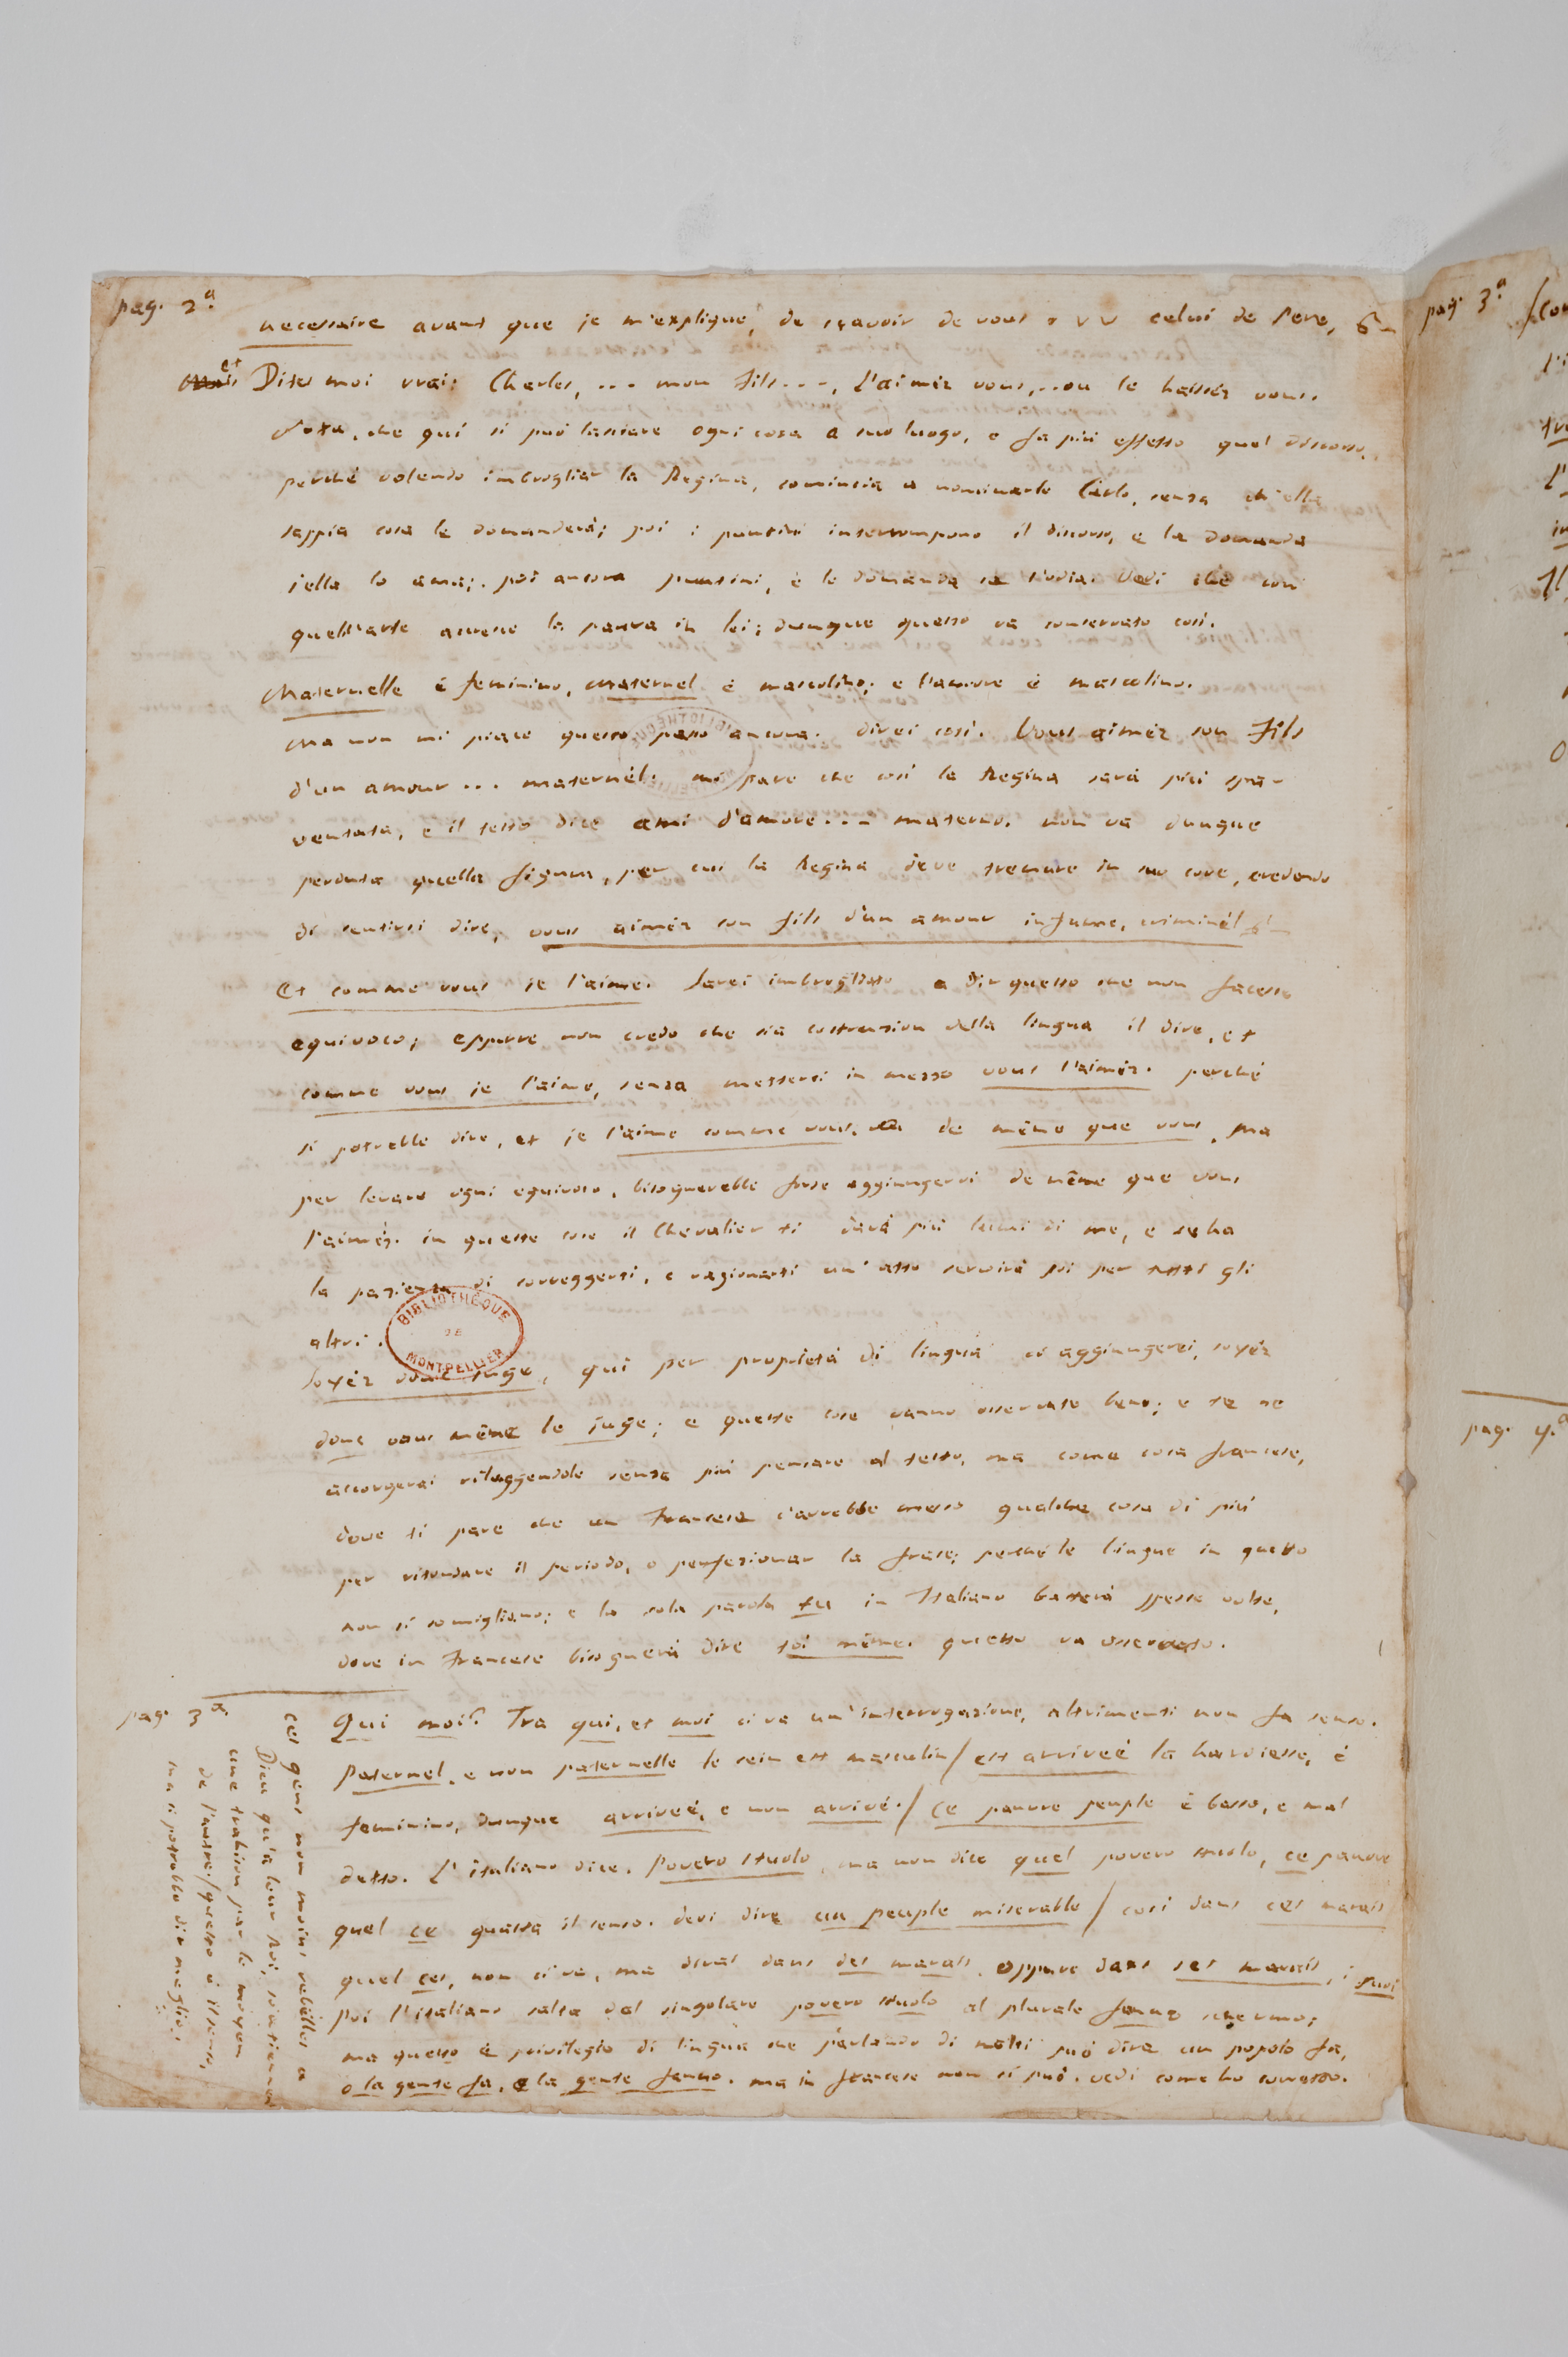 pag. 2.a
necessaire avant que je m'explique, de sçavoir de vous celui de Pere,
et
Dites moi vrai; Charles, ... mon fils ..., l'aimèz vous,.. ou le haissèz vous.
Nota, che qui si può lasciare ogni cosa a suo luogo, e fa più effetto quel discorso,
perchè volendo imbrogliar la Regina, comincia a nominarlo Carlo, senza ch'ella
sappia cosa le domanderà; poi i puntini interrompono il discorso, e la domanda
s'ella lo ama; poi ancora puntini, e le domanda se l'odia. Vedi che con
quell'arte accresce la paura in lei; dunque questo va conservato così.
Maternelle è feminino, maternel è mascolino; e l'amore è mascolino.
Ma non mi piace questo passo ancora. direi così. Vous aimèz son fils
d'un amour ... maternèl. mi pare che così la Regina sarà più spa-
ventata, e il testo dice ami d'amore ... materno. non va dunque
perduta quella figura, per cui la Regina deve tremare in suo core, credendo
di sentirsi dire, vous aimèz son fils d'un amour infame, criminèl
Et comme vous je l'aime. Sarei imbrogliato a dir questo che non facesse
equivoco; eppure non credo che sia costruzion della lingua il dire, et
comme vous je l'aime, senza mettersi in mezzo vous l'aimèz. perchè
si potrebbe dire, et je l'aime comme vous, de même que vous, ma
per levare ogni equivoco, bisognerebbe forse aggiungervi de même que vous
l'aimèz. in queste cose il Chevalier ti darà più lumi di me, e se ha
la pazienza di correggerti, e ragionarti un'atto servirà poi per tutti gli
altri.
BIBLIOTHÈQUE DE MONTPELLIER
Soyèz donc juge, qui per proprietà di lingua ci aggiungerei, soyèz
donc vous même le juge; e queste cose vanno osservate bene; e te ne
accorgerai rileggendole senza più pensare al testo, ma come cosa francese,
dove ti pare che un Francese c'avrebbe messo qualche cosa di più
per ritondare il periodo, o perfezionar la frase; perchè le lingue in questo
non si somigliano; e la sola parola tu in Italiano basterà spesse volte,
dove in Francese bisognerà dire toi même. questo va osservato.
pag. 3.a
Qui moi? Tra qui, et moi ci va un'interrogazione, altrimenti non fa senso.
Paternel, e non paternelle le sein est masculin / est arriveè la hardiesse, è
feminino, dunque arriveè, e non arrivé. / Ce pauvre peuple è basso, e mal
detto. L'italiano dice, Povero stuolo, ma non dice quel povero stuolo, ce pauvre
quel ce guasta il senso. devi dire un peuple miserable / così dans ces marais
quel ces, non ci va, ma dirai dans des marais, oppure dans ses marais, i suoi
Poi l'italiano salta dal singolare povero stuolo al plurale fanno schermo;
ma questo è privilegio di lingua che parlando di molti può dire un popolo fa,
o la gente fa, e la gente fanno. ma in francese non si può. vedi come ho corretto.
ces gens non moins rebélles a
Dieu qu'a leur roi,
une trahison par le moyen
de l'autre / questo è il senso,
ma si potrebbe dir meglio.
pag. 3.a
pag. 4.a